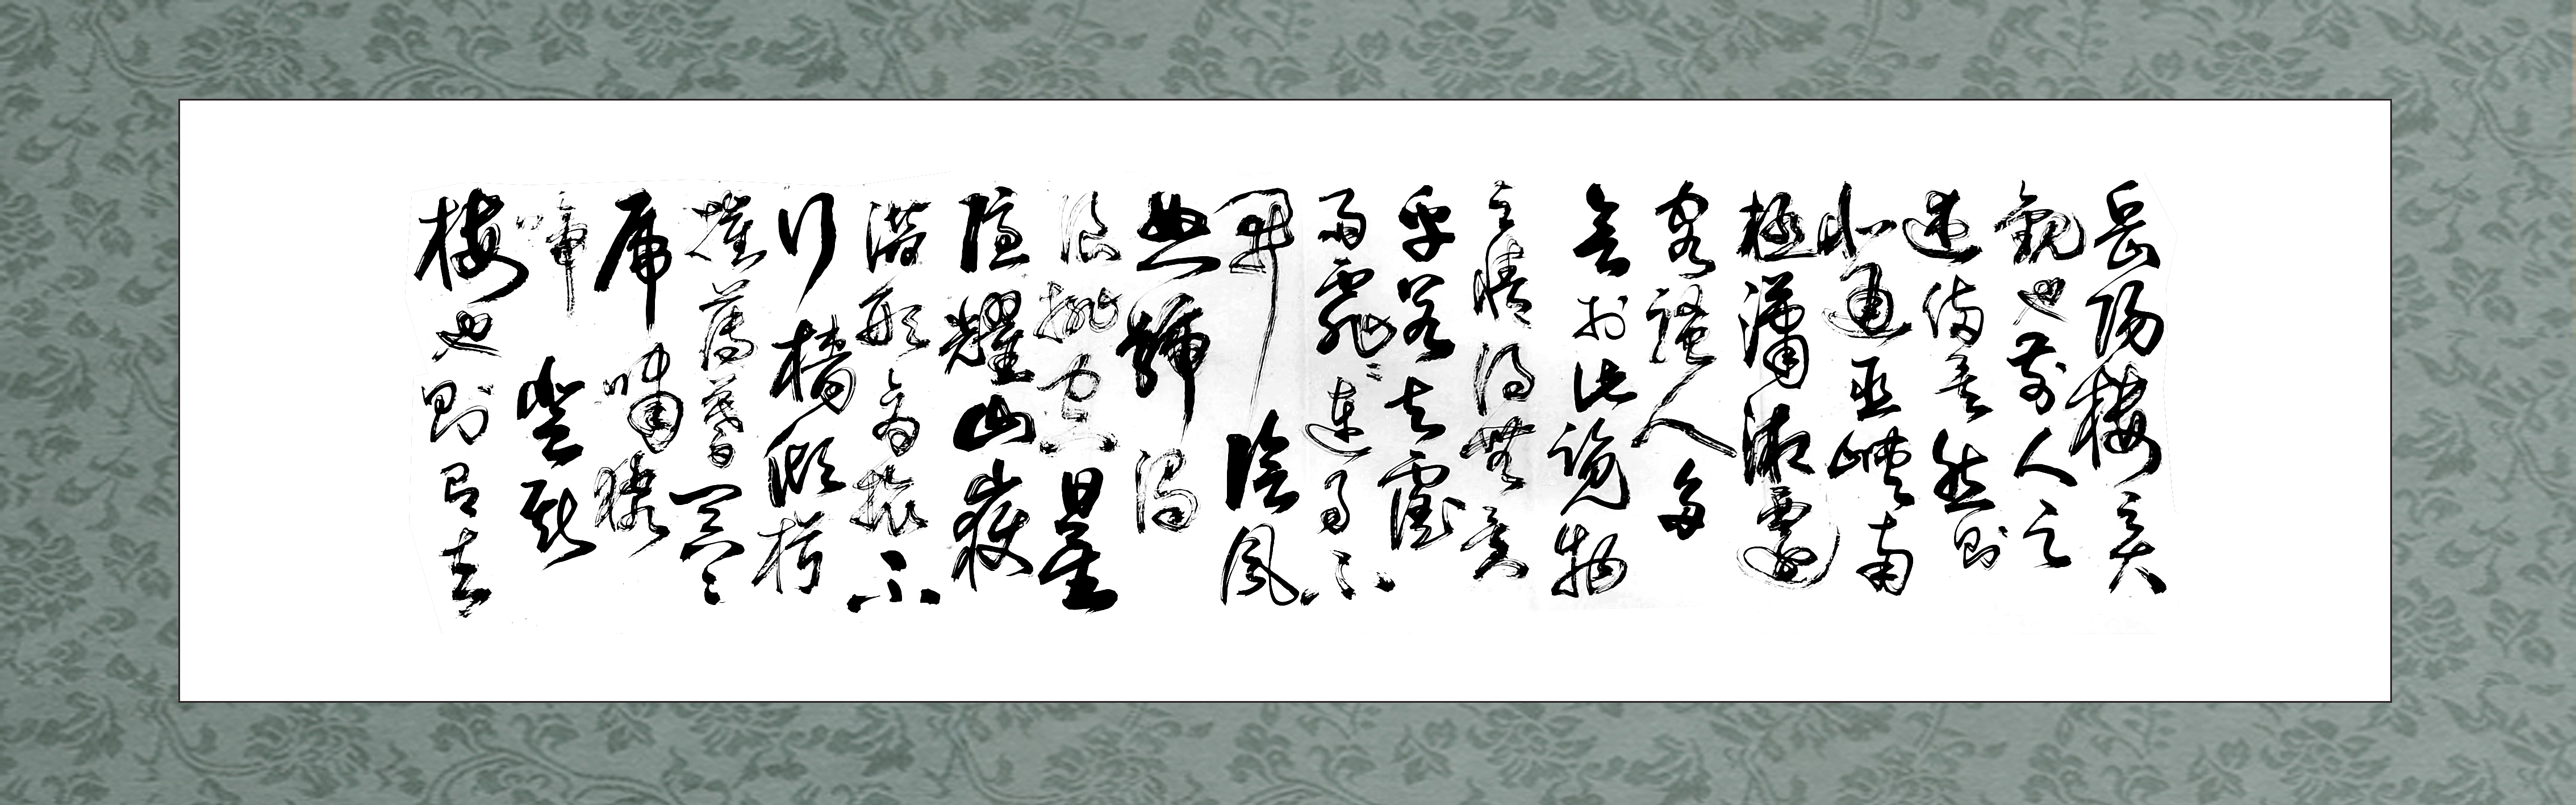 岳陽樓之大
觀也前人之
述備矣然則
北通巫峽南
極瀟湘遷
客騷人多
會於此覽物
之情得無異
乎若夫霪
雨霏〻連月不
開陰風
怒號濁
浪排空日星
隱耀山嶽
潛形商旅不
行檣傾楫
摧薄暮冥〻
虎嘯猿
啼登斯
樓也則有去